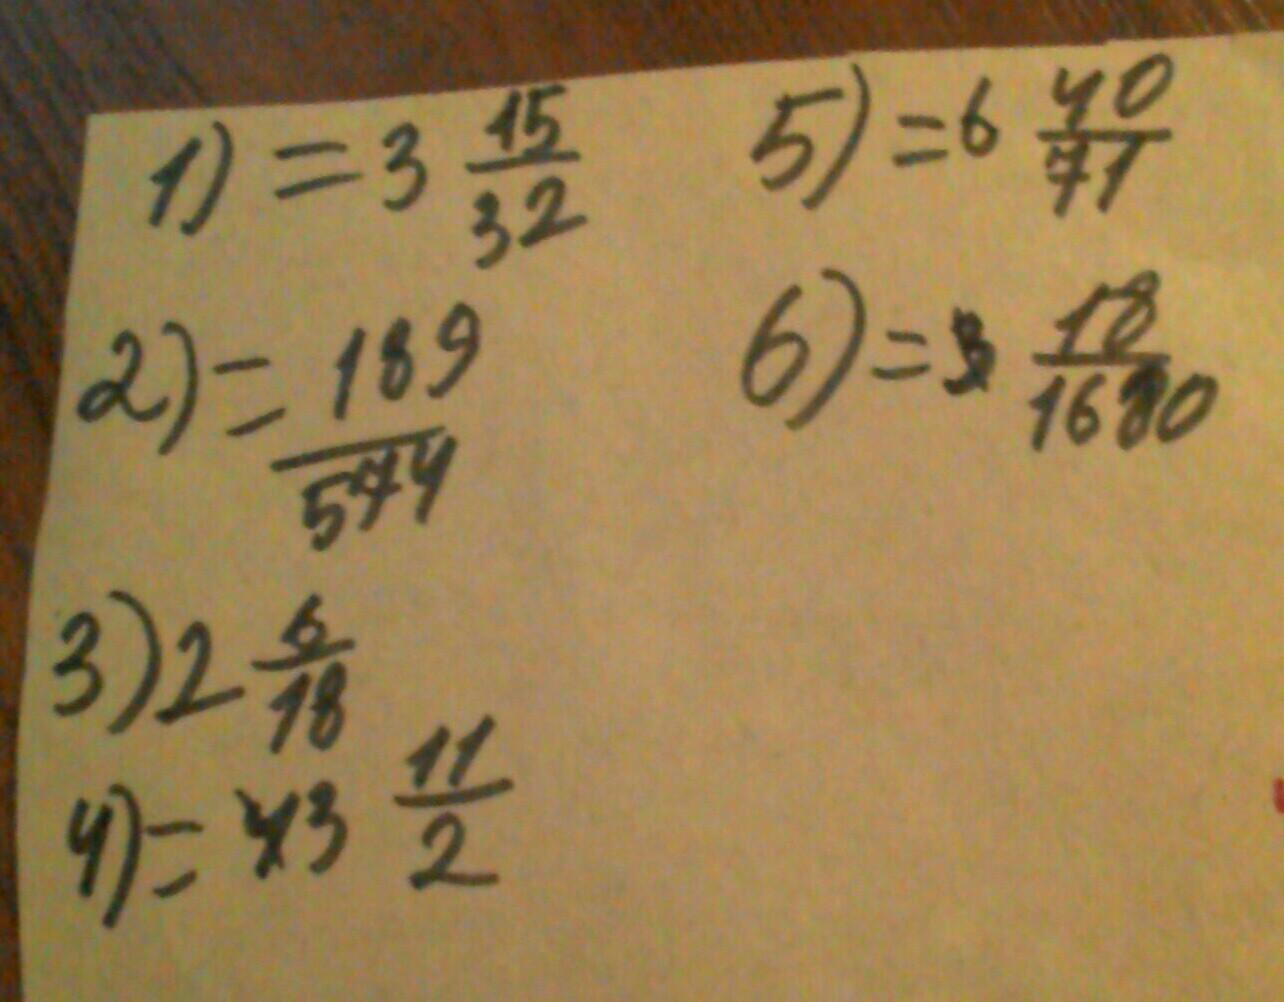 1) = 3 15/32
2) = 189/574
3) 2 6/18
4) = 43 11/2
5) = 6 40/71
6) = 3 18/1680